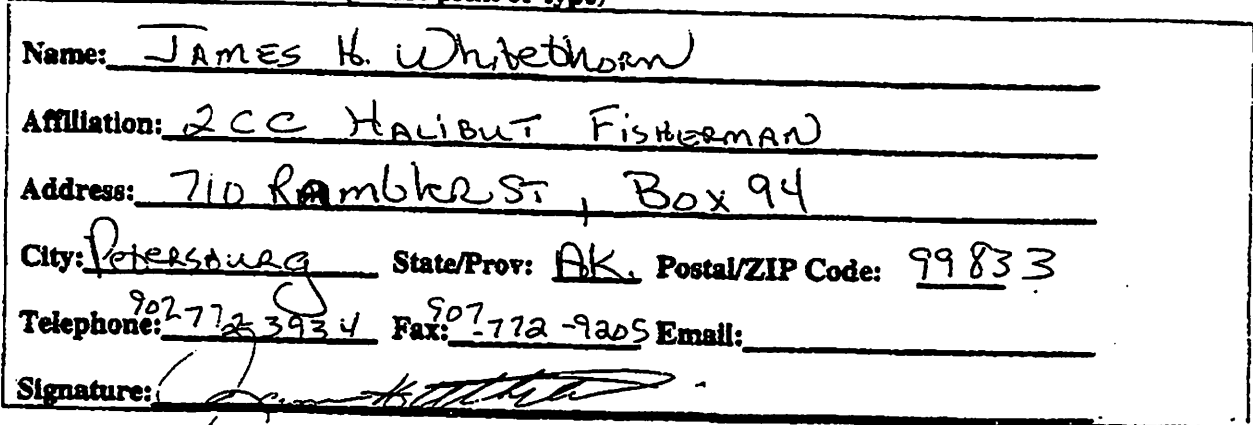 Name: JAMES H. Whitethorn
Affiliation: 2CC HALIBUT FISHERMAN
Address: 710 Rambler St, Box 94
City: Petersburg State/Prov: AK. Postal/ZIP Code: 99833
Telephone: 907-772-3934 Fax: 907-772-9205 Email:
Signature: